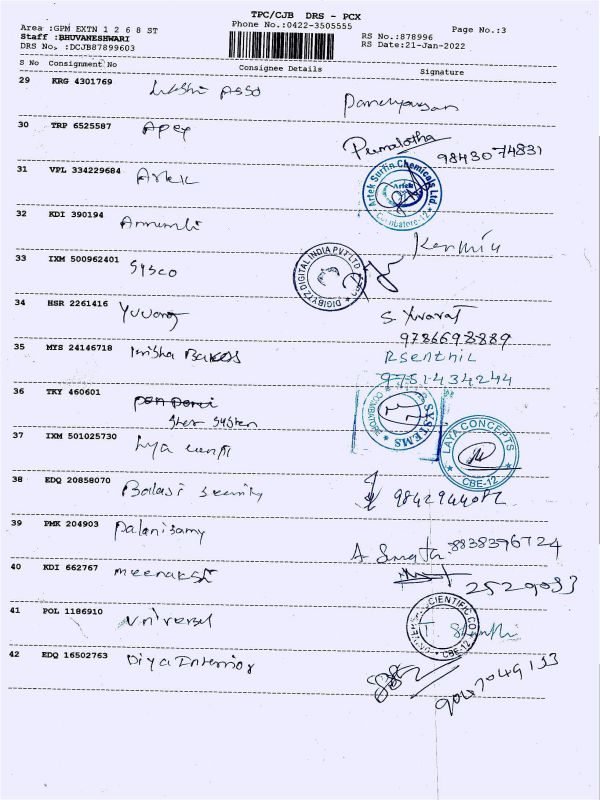 TPC/CJB DRS - PCX
Area :GPM EXTN 1 2 6 8 ST
Phone No.:0422-3505555
Page No.:3
Staff :BHUVANESHWARI
RS No.:878996
DRS No. :DCJB87899603
RS Date:21-Jan-2022
S No Consignment No Consignee Details Signature
29 KRG 4301769
30 TRP 6525587 Apex
Premalatha 9843074831
31 VPL 334229684 Artek
Artek Surfin Chemicals Ltd
Artek
Coimbatore-12
32 KDI 390194
33 IXM 500962401 Sysco
DIGIBYTZ DIGITAL INDIA PVT LTD
34 HSR 2261416 Yuvaraj
S. Yuvaraj
9786692889
35 MYS 24146718 Krisha Bakers
RSenthil
9751434244
36 TKY 460601
System
SYSTEMS
37 IXM 501025730
LAYA CONCEPTS
CBE-12
38 EDQ 20858070 Balaji Security
39 PMK 204903 Palanisamy
8838396724
40 KDI 662767 Meenakshi
2529033
41 POL 1186910 Universal
UNIVERSAL SCIENTIFIC CO
CBE-12
42 EDQ 16502763 Diya Interior